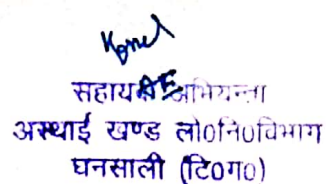 सहायक अभियन्ता
अस्थाई खण्ड लो०नि०विभाग
घनसाली (टि०ग०)